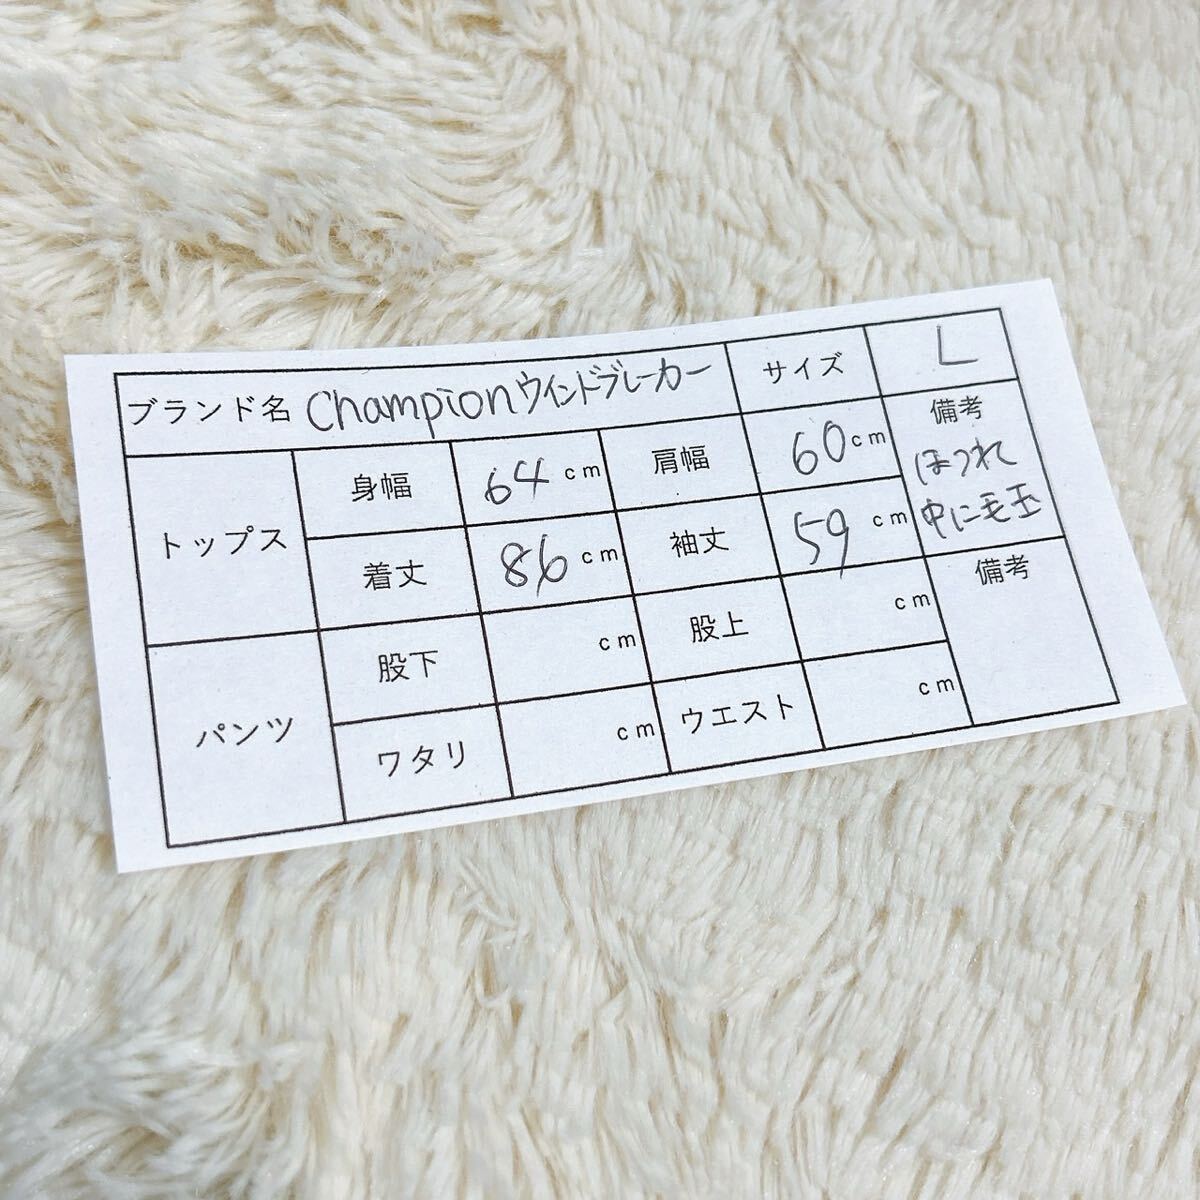 ブランド名 Championウインドブレーカー サイズ L
トップス 身幅 64cm 肩幅 60cm 備考
着丈 86cm 袖丈 59cm ほつれ
中に毛玉
パンツ 股下 cm 股上 cm 備考
ワタリ cm ウエスト cm